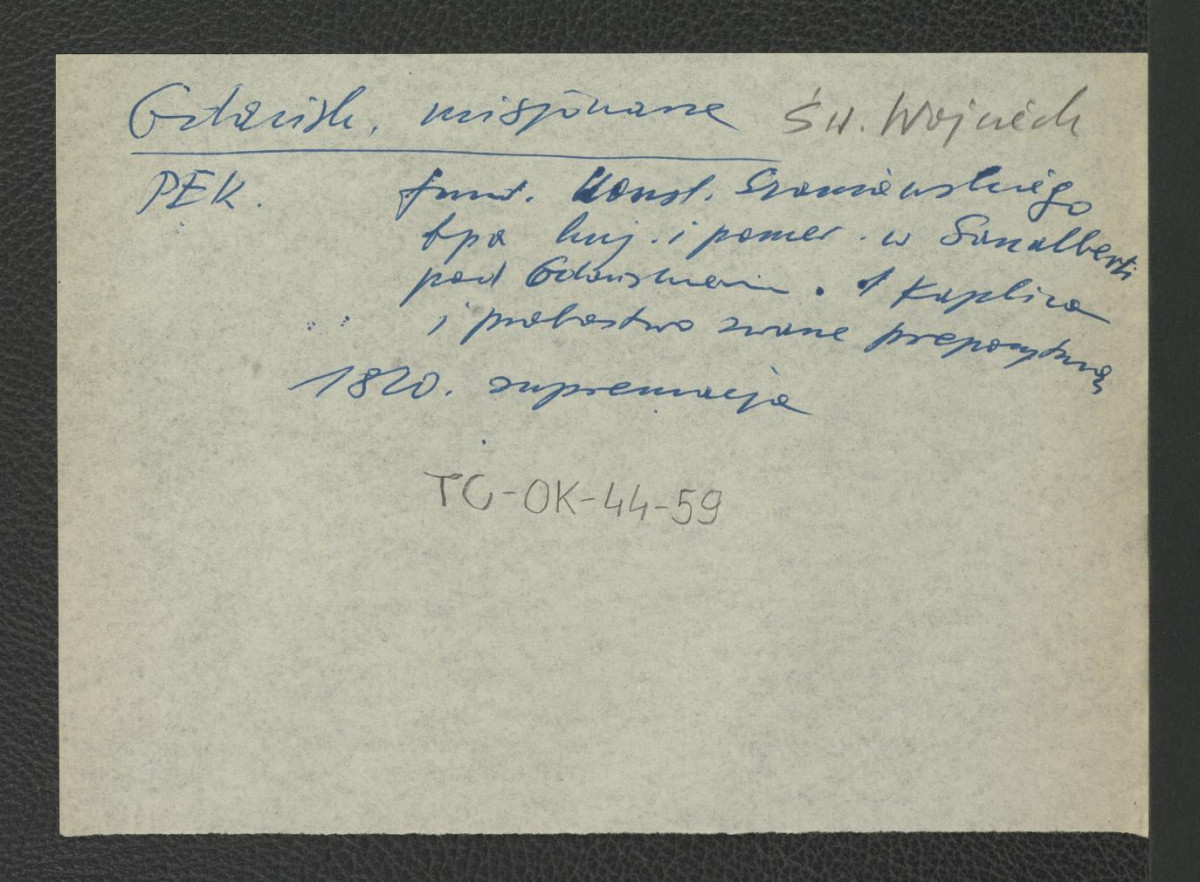 Gdańsk, misjonarze Św. Wojciech
PEK. fund. Konst. Szaniawskiego
bpa kuj. i pomor. w Sanalberti
pod Gdańskiem. Kaplica
i probostwo zwane prepozyturą
1820. supremacja
TC-OK-44-59